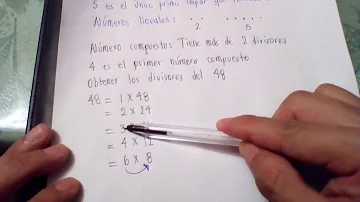 5 es el único primo impar que
Números lineales: .. .....
2 5
Número compuesto: Tiene más de 2 divisores
4 es el primer número compuesto
Obtener los divisores del 48
48 = 1 x 48
= 2 x 24
= 3
= 4 x 12
= 6 x 8